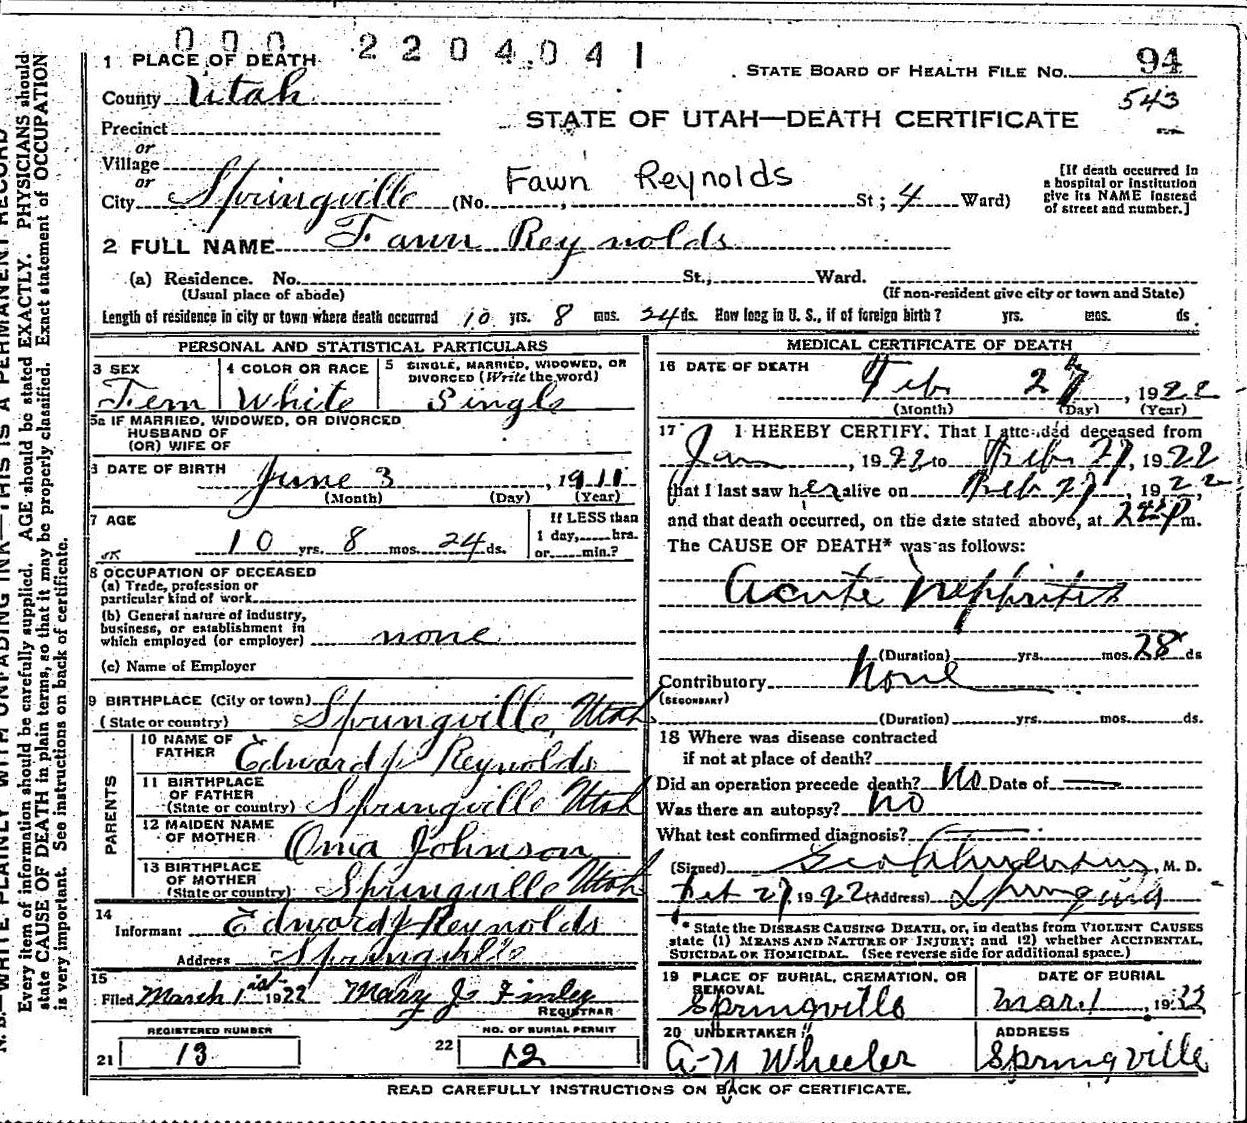 000 2204041
1 PLACE OF DEATH
STATE BOARD OF HEALTH FILE No. 94
County Utah
543
Precinct
STATE OF UTAH—DEATH CERTIFICATE
or
Village
or
City Springville (No. Fawn Reynolds St; 4 Ward)
[If death occurred in
a hospital or institution
give its NAME instead
of street and number.]
2 FULL NAME Fawn Reynolds
(a) Residence. No. St., Ward.
(Usual place of abode) (If non-resident give city or town and State)
Length of residence in city or town where death occurred 10 yrs. 8 mos. 24 ds. How long in U. S., if of foreign birth? yrs. mos. ds.
PERSONAL AND STATISTICAL PARTICULARS
3 SEX 4 COLOR OR RACE 5 SINGLE, MARRIED, WIDOWED, OR
DIVORCED (Write the word)
Fem White Single
5a IF MARRIED, WIDOWED, OR DIVORCED
HUSBAND OF
(OR) WIFE OF
6 DATE OF BIRTH
June 3, 1911
(Month) (Day) (Year)
7 AGE If LESS than
1 day, hrs.
or min.?
10 yrs. 8 mos. 24 ds.
8 OCCUPATION OF DECEASED
(a) Trade, profession or
particular kind of work
(b) General nature of industry,
business, or establishment in
which employed (or employer) none
(c) Name of Employer
9 BIRTHPLACE (City or town)
(State or country) Springville, Utah
PARENTS
10 NAME OF
FATHER Edward J Reynolds
11 BIRTHPLACE
OF FATHER
(State or country) Springville Utah
12 MAIDEN NAME
OF MOTHER Oma Johnson
13 BIRTHPLACE
OF MOTHER
(State or country) Springville Utah
14
Informant Edward J Reynolds
Address Springville
15
Filed March 1st 1922 Mary J. Finley
REGISTRAR
REGISTERED NUMBER NO. OF BURIAL PERMIT
21 13 22 12
MEDICAL CERTIFICATE OF DEATH
16 DATE OF DEATH
Feb 27, 1922
(Month) (Day) (Year)
17 I HEREBY CERTIFY. That I attended deceased from
Jan, 1922 to Feb 27, 1922
that I last saw her alive on Feb 27, 1922
and that death occurred, on the date stated above, at m.
The CAUSE OF DEATH* was as follows:
Acute Nephritis
(Duration) yrs. mos. 28 ds
Contributory None
(SECONDARY)
(Duration) yrs. mos. ds.
18 Where was disease contracted
if not at place of death?
Did an operation precede death? No Date of
Was there an autopsy? no
What test confirmed diagnosis?
(Signed) Geo Anderson, M. D.
Feb 27, 1922 (Address) Springville
* State the DISEASE CAUSING DEATH, or, in deaths from VIOLENT CAUSES
state (1) MEANS AND NATURE OF INJURY; and (2) whether ACCIDENTAL,
SUICIDAL OR HOMICIDAL. (See reverse side for additional space.)
19 PLACE OF BURIAL, CREMATION, OR
REMOVAL
Springville
DATE OF BURIAL
Mar. 1, 1922
20 UNDERTAKER
A-Y Wheeler
ADDRESS
Springville
READ CAREFULLY INSTRUCTIONS ON BACK OF CERTIFICATE.
N. B.—WRITE PLAINLY WITH UNFADING INK—THIS IS A PERMANENT RECORD
Every item of information should be carefully supplied. AGE should be stated EXACTLY. PHYSICIANS should
state CAUSE OF DEATH in plain terms, so that it may be properly classified. Exact statement of OCCUPATION
is very important. See instructions on back of certificate.